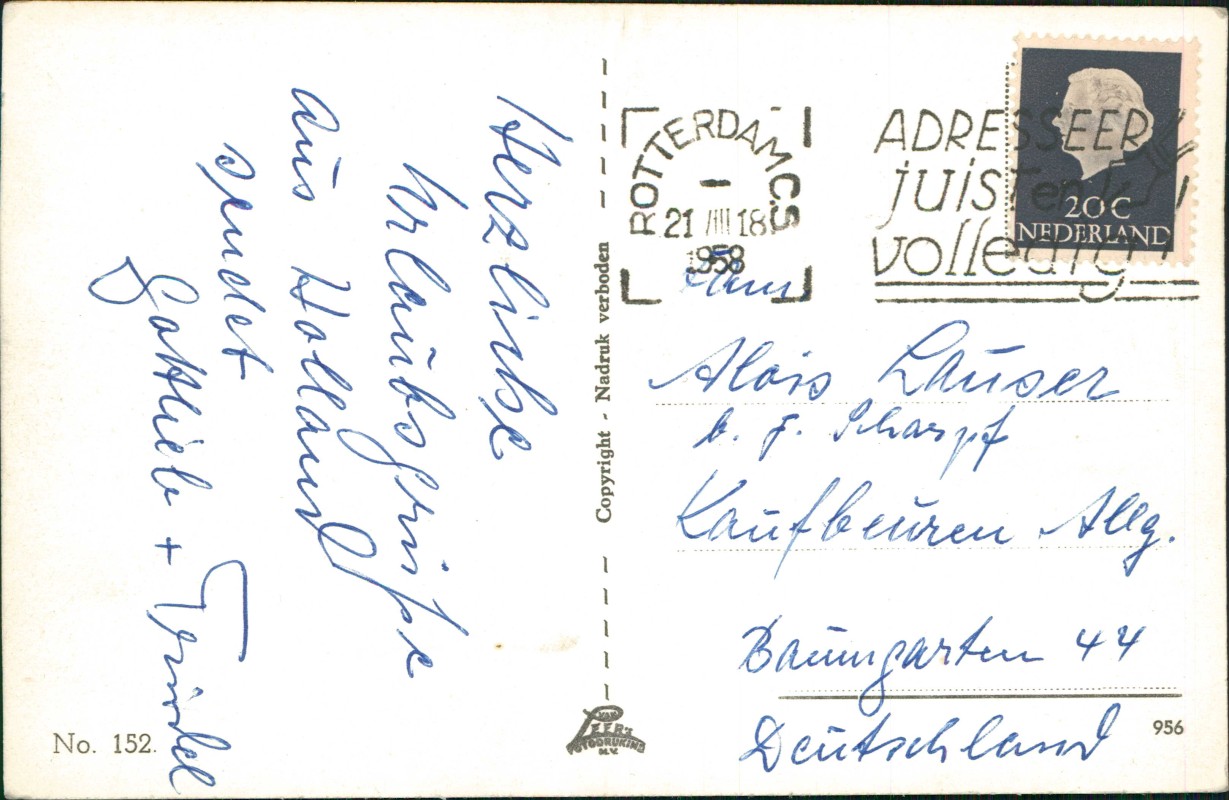 Herzliche
Urlaubsgrüße
aus Holland
sendet
Gottlieb + Trudel
No. 152.
Copyright - Nadruk verboden
VAN
LEER'S
FOTODRUKIND.
N.V.
ROTTERDAM C.S
21 VIII 18
1958
ADRESSEER
juist en
volledig
20 C
NEDERLAND
Fam.
Alois Lauser
b. J. Scharpf
Kaufbeuren Allg.
Baumgarten 44
Deutschland
956